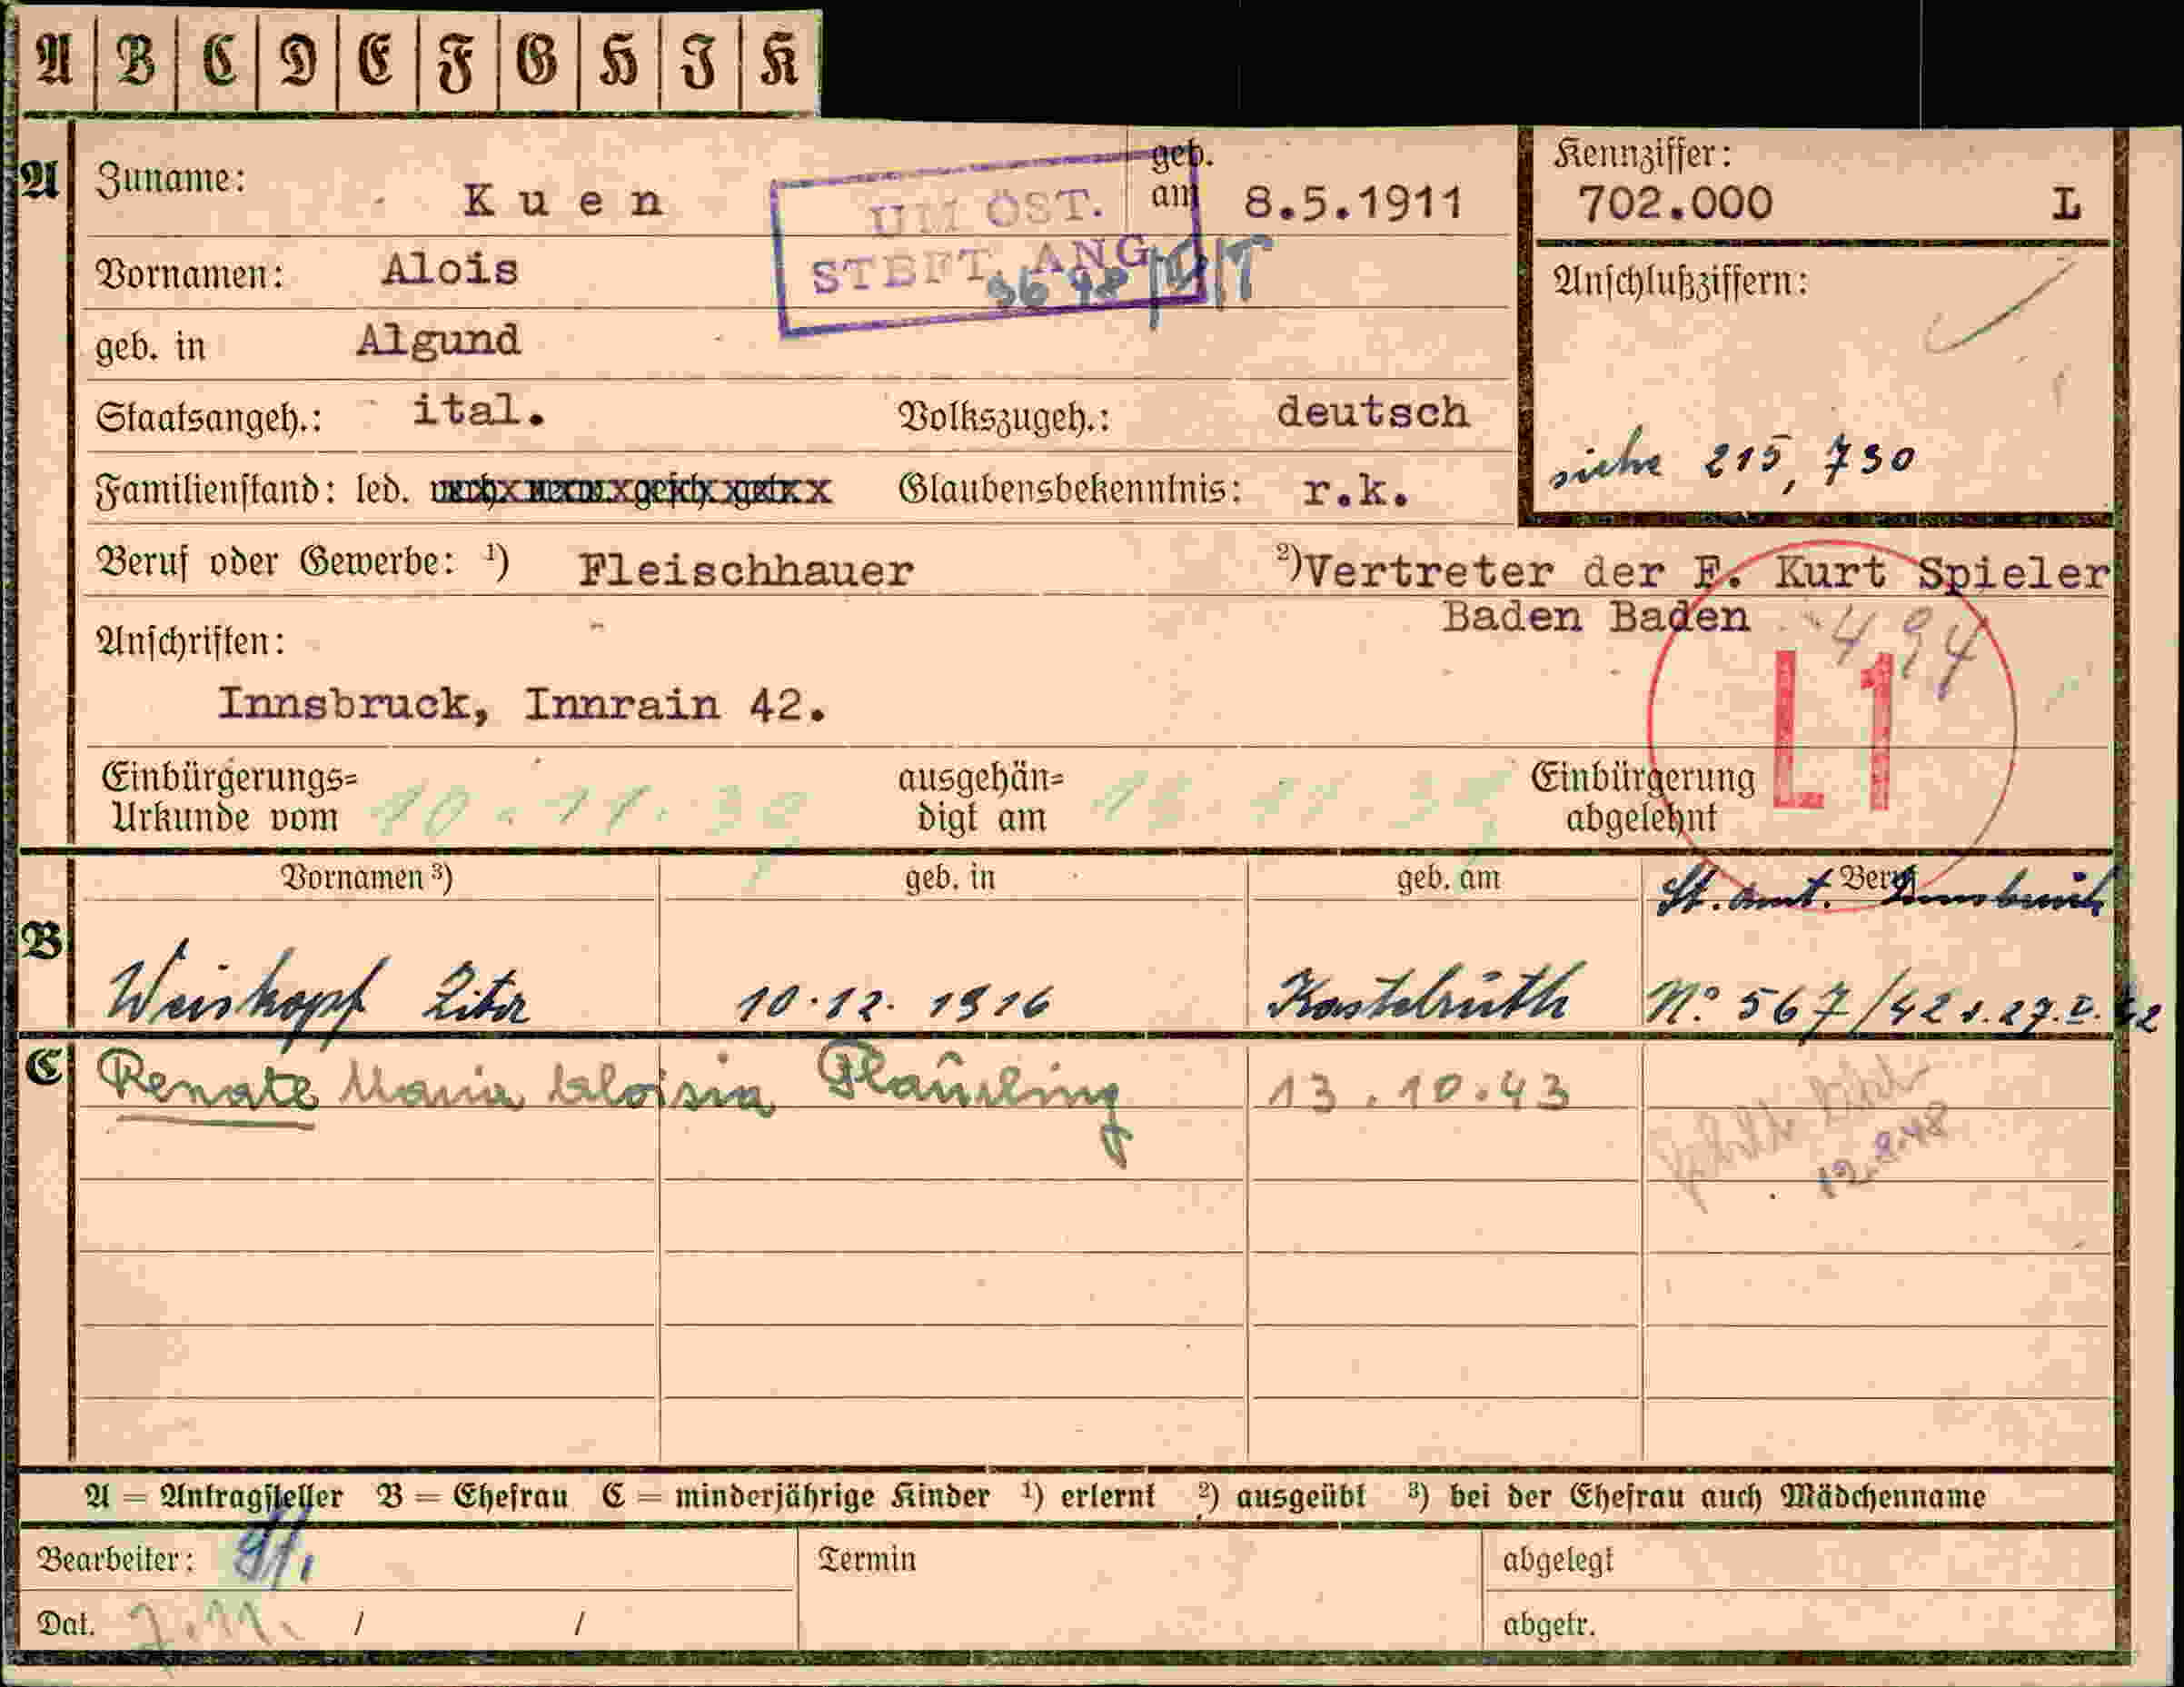 A B C D E F G H J K
A Zuname: Kuen geb. am 8.5.1911 Kennziffer: 702.000 L
UM ÖST.
STBFT. ANG.
Vornamen: Alois Anschlußziffern:
geb. in Algund
Staatsangeh.: ital. Volkszugeh.: deutsch
siehe 215,730
Familienstand: led. Glaubensbekenntnis: r.k.
Beruf oder Gewerbe: ¹) Fleischhauer ²)Vertreter der F. Kurt Spieler
Baden Baden 494
Anschriften:
L1
Innsbruck, Innrain 42.
Einbürgerungs= Urkunde vom 10.11.39 ausgehän= digt am Einbürgerung abgelehnt
Vornamen ³) geb. in geb. am Beruf
St. amt. Innsbruck
B Weiskopf Zita 10.12.1916 Kastelruth No 567/42 v. 27.X.42
C Renate Maria Aloisia 13.10.43
12.8.48
A = Antragsteller B = Ehefrau C = minderjährige Kinder ¹) erlernt ²) ausgeübt ³) bei der Ehefrau auch Mädchenname
Bearbeiter: Termin abgelegt
Dat. 7.11. / / abgetr.